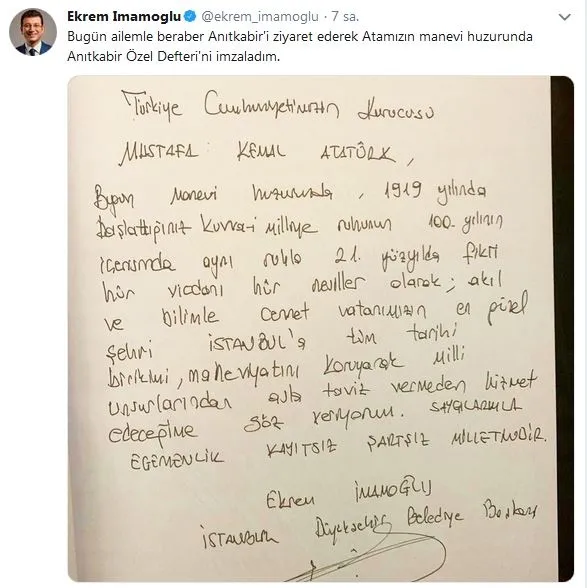 Ekrem Imamoglu @ekrem_imamoglu · 7 sa.
Bugün ailemle beraber Anıtkabir'i ziyaret ederek Atamızın manevi huzurunda
Anıtkabir Özel Defteri'ni imzaladım.
Türkiye Cumhuriyetimizin Kurucusu
MUSTAFA KEMAL ATATÜRK,
Bugün manevi huzurunda, 1919 yılında
başlattığınız Kuvva-i milliye ruhunun 100. yılının
içerisinde aynı ruhla 21. yüzyılda fikri
hür vicdanı hür nesiller olarak; akıl
ve bilimle cennet vatanımızın en güzel
şehri İSTANBUL'a tüm tarihi
birikimi, maneviyatını koruyarak milli
unsurlarından asla taviz vermeden hizmet
edeceğime söz veriyorum. SAYGILARIMLA
EGEMENLİK KAYITSIZ ŞARTSIZ MİLLETİNDİR.
Ekrem İMAMOĞLU
İSTANBUL Büyükşehir Belediye Başkanı